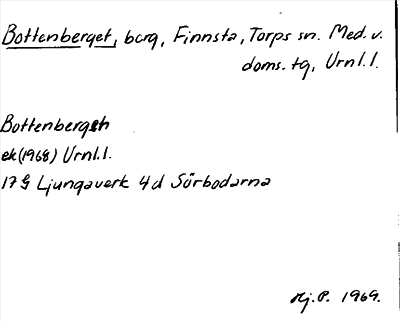 Bottenberget, berg, Finnsta, Torps sn. Med. v.
doms. tg, Urnl. l.
Bottenberget
ek (1968) Urnl. l.
17G Ljungaverk 4d Sörbodarna
Hj. P. 1969.